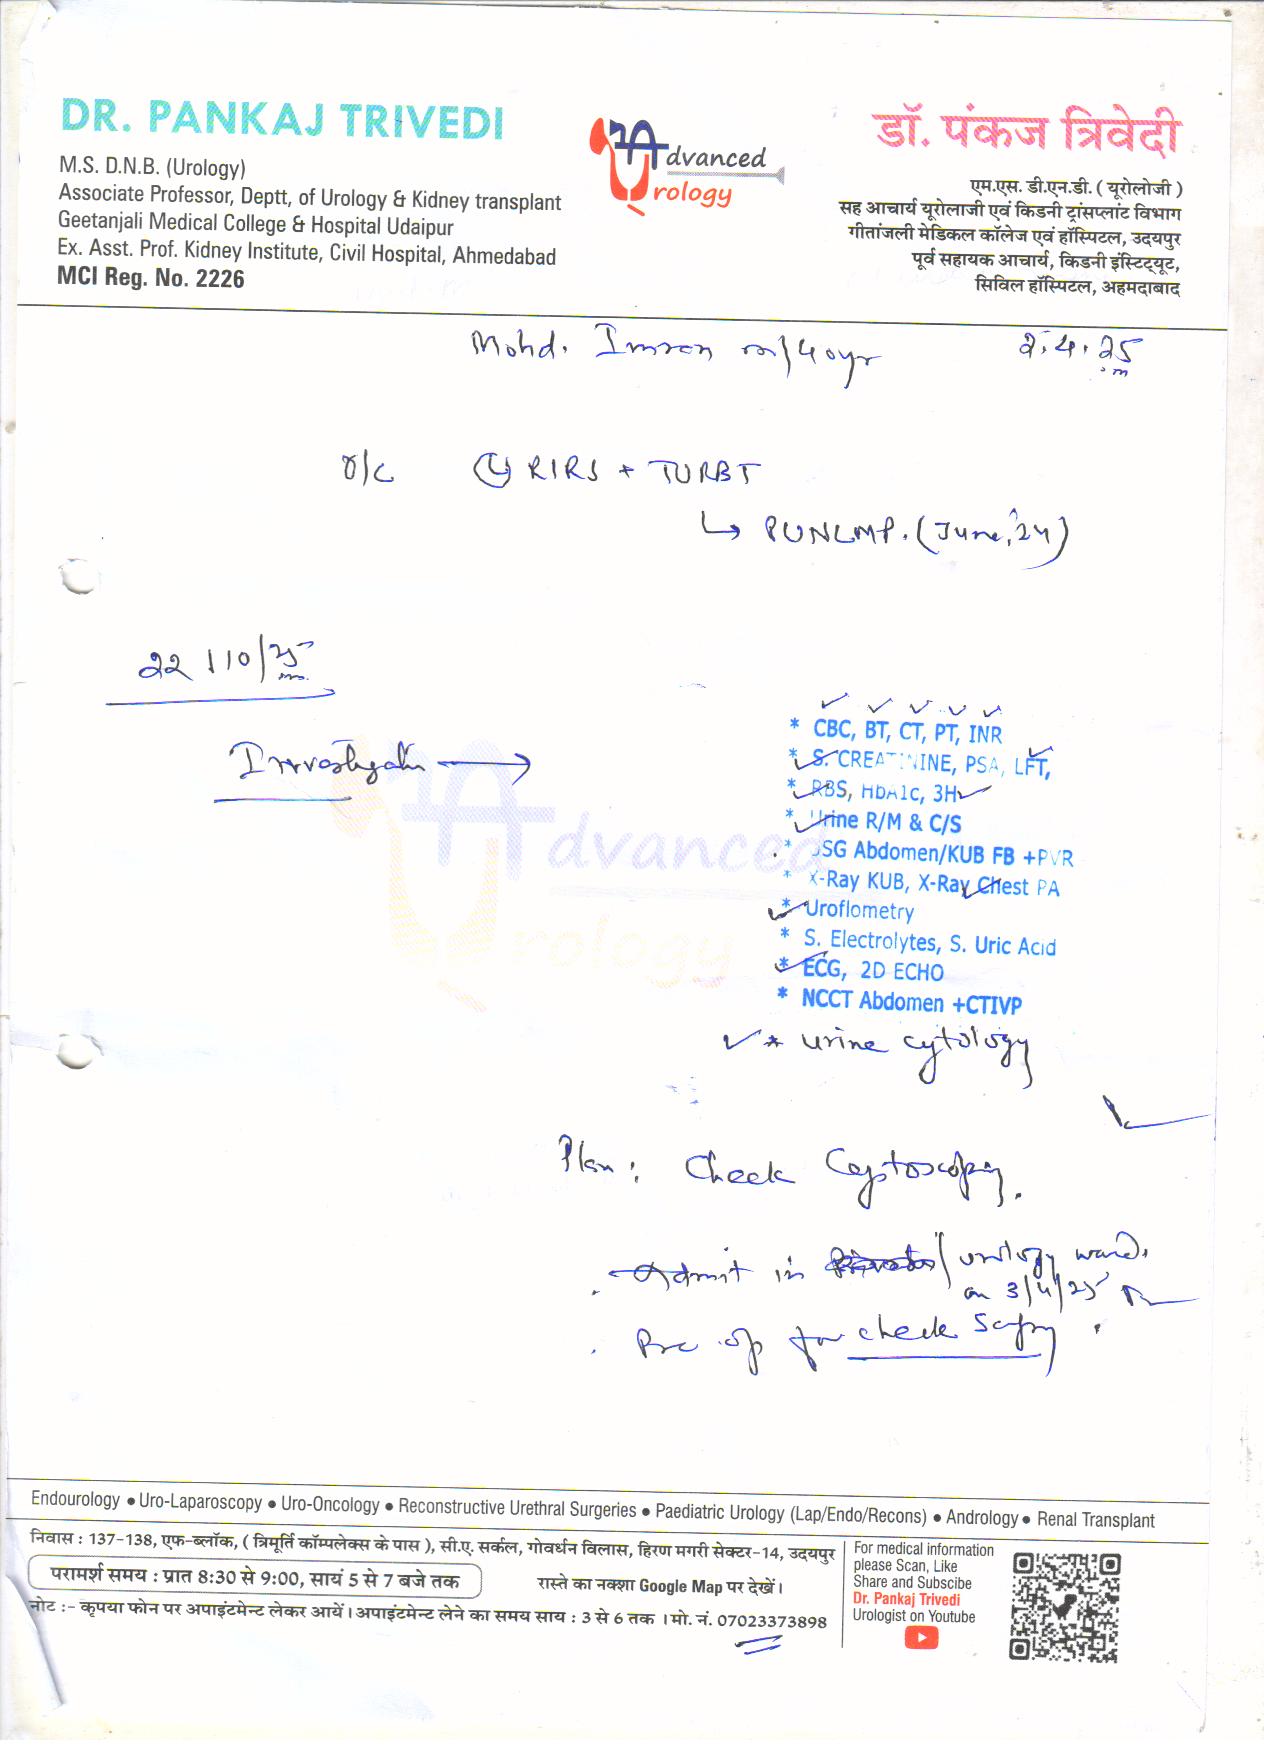 DR. PANKAJ TRIVEDI
M.S. D.N.B. (Urology)
Associate Professor, Deptt, of Urology & Kidney transplant
Geetanjali Medical College & Hospital Udaipur
Ex. Asst. Prof. Kidney Institute, Civil Hospital, Ahmedabad
MCI Reg. No. 2226
Advanced
Urology
डॉ. पंकज त्रिवेदी
एम.एस. डी.एन.डी. ( यूरोलोजी )
सह आचार्य यूरोलाजी एवं किडनी ट्रांसप्लांट विभाग
गीतांजली मेडिकल कॉलेज एवं हॉस्पिटल, उदयपुर
पूर्व सहायक आचार्य, किडनी इंस्टिट्यूट,
सिविल हॉस्पिटल, अहमदाबाद
Mohd. Imran m/40yr 2.4.25
RIRS + TURBT
↳ PUNLMP. (June, 24)
22/10/25
Investigation →
* CBC, BT, CT, PT, INR
* S. CREATININE, PSA, LFT,
* RBS, HbA1c, 3H
* Urine R/M & C/S
* USG Abdomen/KUB FB +PVR
* X-Ray KUB, X-Ray Chest PA
* Uroflometry
* S. Electrolytes, S. Uric Acid
* ECG, 2D ECHO
* NCCT Abdomen +CTIVP
* urine cytology
Advanced
Urology
Plan: Check Cystoscopy.
. Admit in / urology ward.
on 3/4/25
. Pre op for check Scopy.
Endourology ● Uro-Laparoscopy ● Uro-Oncology ● Reconstructive Urethral Surgeries ● Paediatric Urology (Lap/Endo/Recons) ● Andrology ● Renal Transplant
निवास : 137-138, एफ-ब्लॉक, ( त्रिमूर्ति कॉम्पलेक्स के पास ), सी.ए. सर्कल, गोवर्धन विलास, हिरण मगरी सेक्टर-14, उदयपुर
परामर्श समय : प्रात 8:30 से 9:00, सायं 5 से 7 बजे तक रास्ते का नक्शा Google Map पर देखें।
नोट :- कृपया फोन पर अपाइंटमेन्ट लेकर आयें। अपाइंटमेन्ट लेने का समय साय : 3 से 6 तक । मो. नं. 07023373898
For medical information
please Scan, Like
Share and Subscibe
Dr. Pankaj Trivedi
Urologist on Youtube